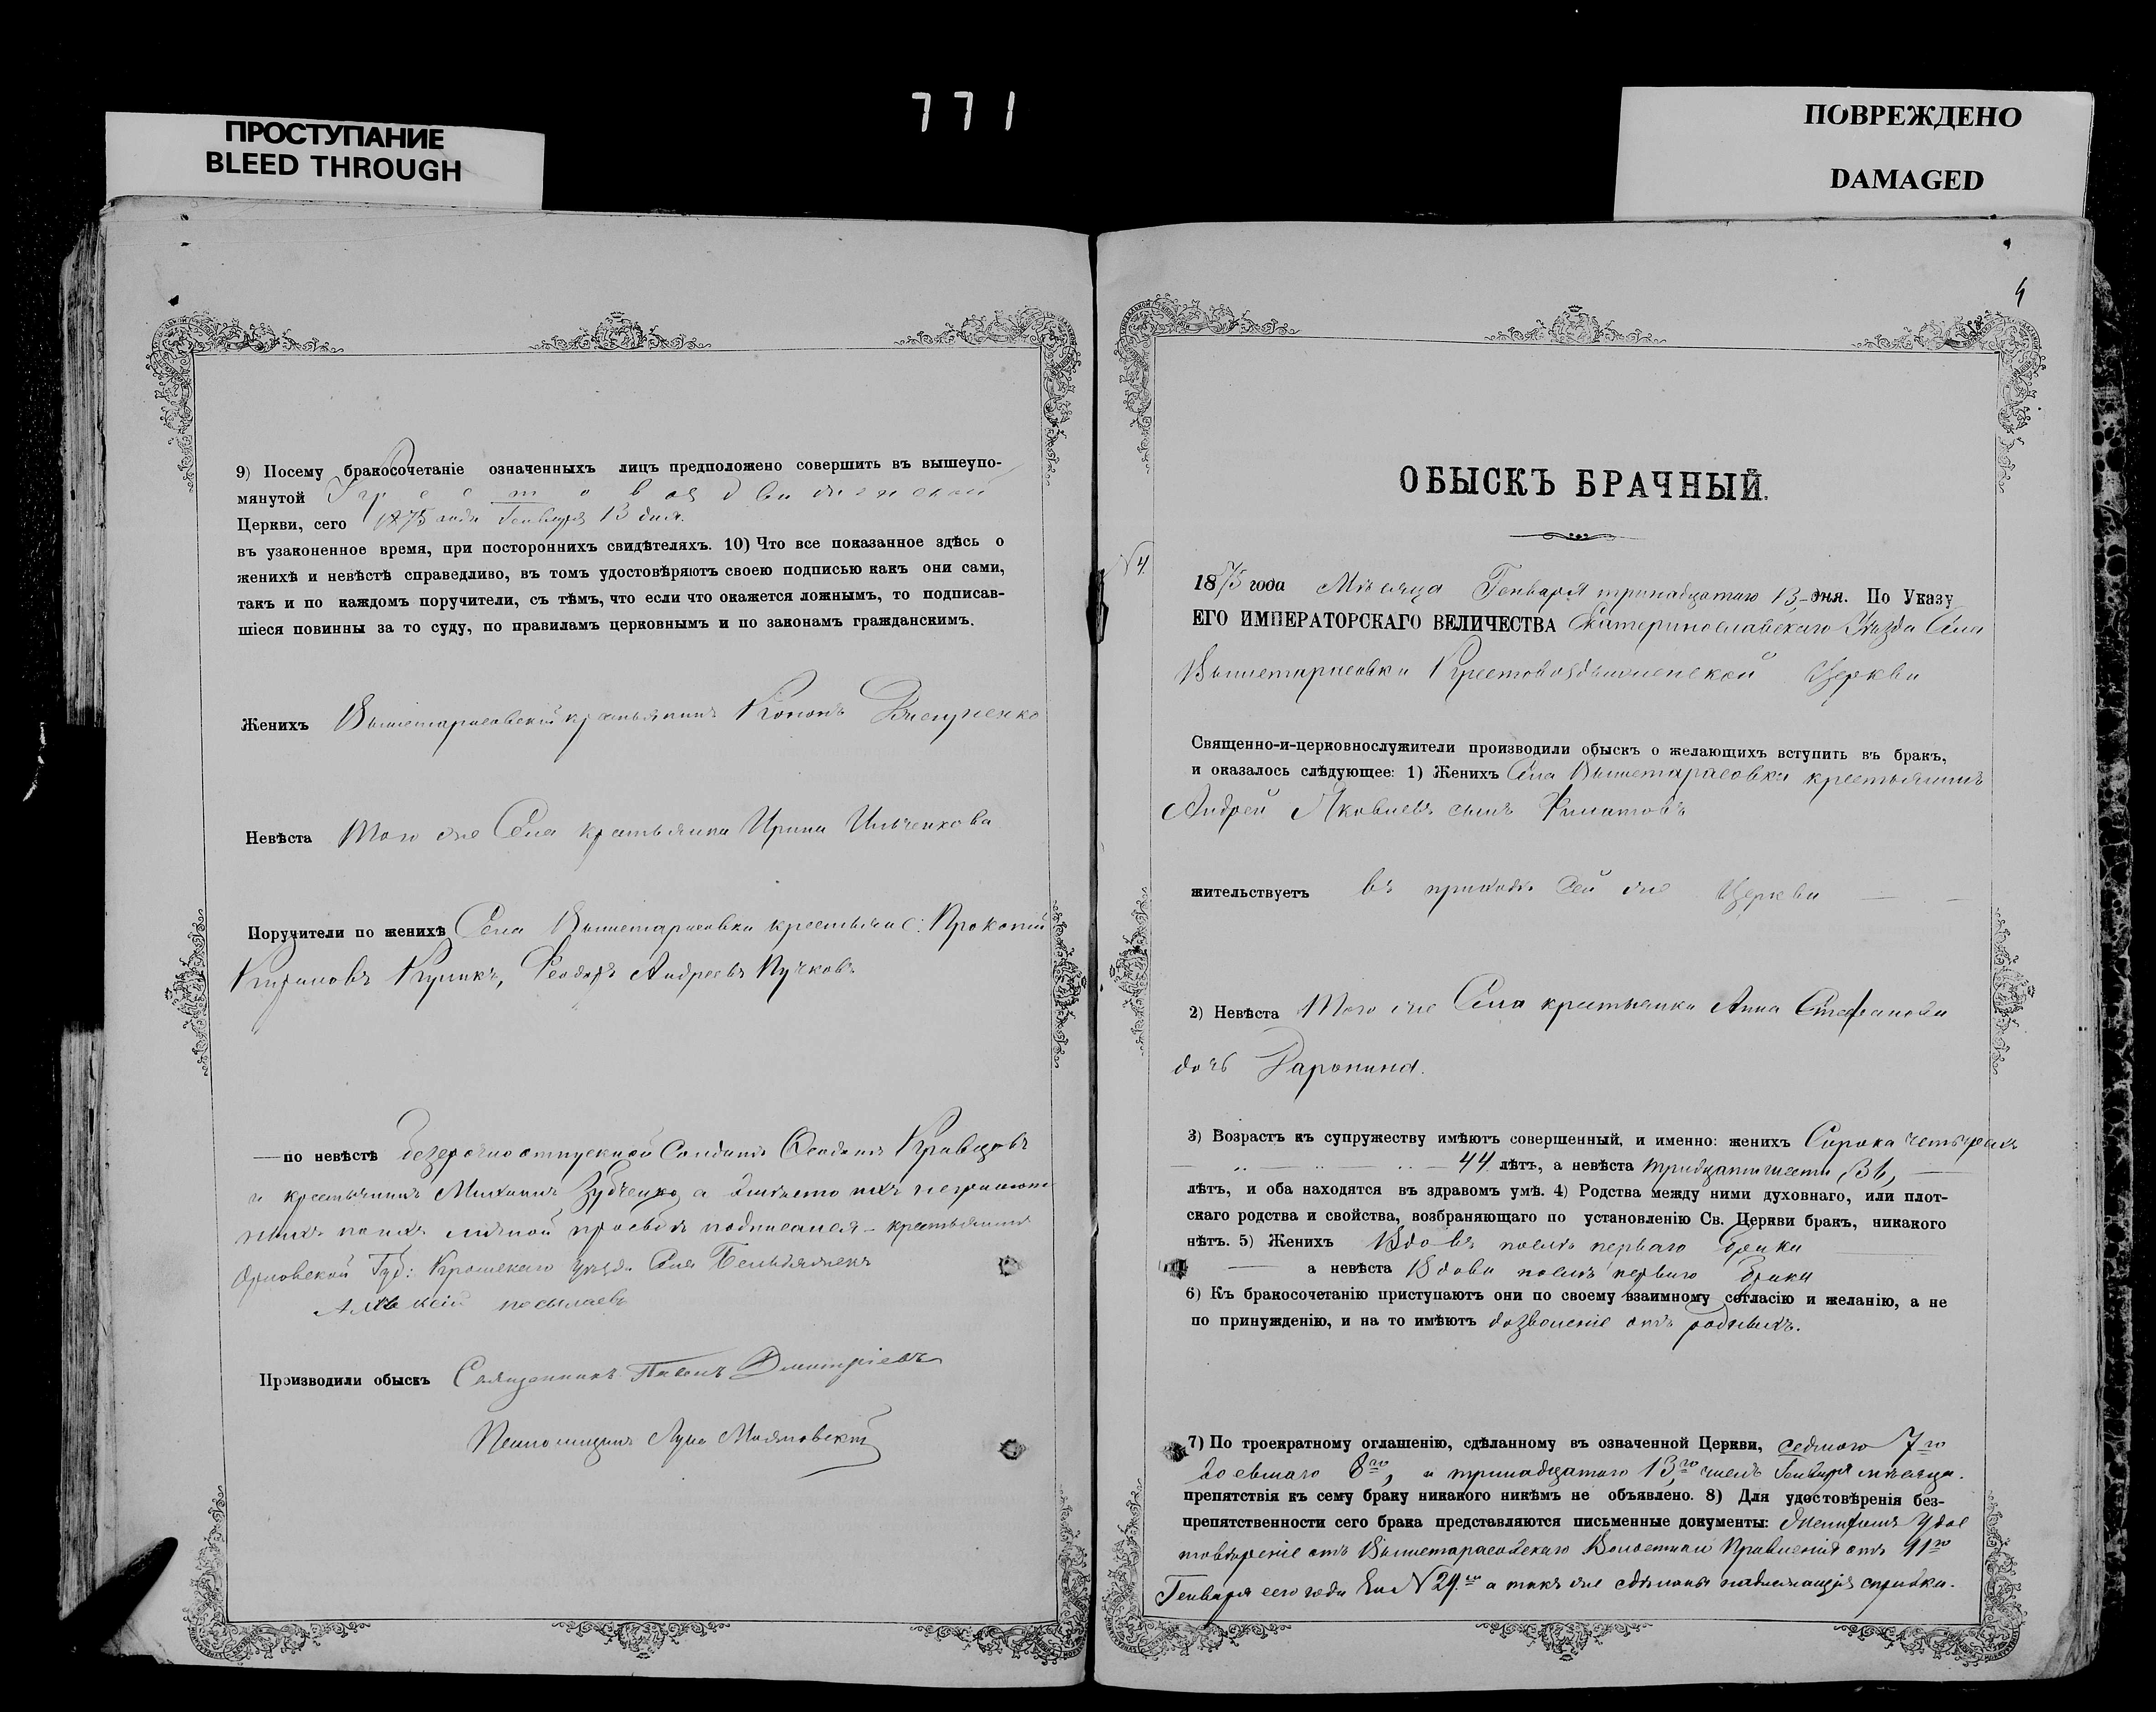 771
ПРОСТУПАНИЕ
BLEED THROUGH
ПОВРЕЖДЕНО
DAMAGED
9) Посему бракосочетаніе означенныхъ лицъ предположено совершить въ вышеупо-
мянутой Крестовоздвиженской
Церкви, сего 1875 года Генваря 13 дня.
въ узаконенное время, при постороннихъ свидѣтеляхъ. 10) Что все показанное здѣсь о
женихѣ и невѣстѣ справедливо, въ томъ удостовѣряютъ своею подписью какъ они сами,
такъ и по каждомъ поручители, съ тѣмъ, что если что окажется ложнымъ, то подписав-
шіеся повинны за то суду, по правиламъ церковнымъ и по законамъ гражданскимъ.
Женихъ Вышетарасовскій крестьянинъ Кононъ
Невѣста Того же Села крестьянка Ирина Ильченкова
Поручители по женихѣ Села Вышетарасовки крестьяне: Прокопій
Куликъ, Ѳеодоръ Андреевъ Пучковъ
—по невѣстѣ безсрочноотпускной Солдатъ Кравцовъ
и крестьянинъ Михаилъ Зубченко а вмѣсто ихъ неграмот
ныхъ по ихъ личной прозьбѣ подписался – крестьянинъ
Орловской Губ: Кромскаго уѣзда Села
Алѣксій
Производили обыскъ Священникъ Павелъ Дмитріевъ
Псаломщикъ Лука
4
ОБЫСКЪ БРАЧНЫЙ.
N 4.
1875 года Мѣсяца Генваря тринадцатаго 13-дня. По Указу
ЕГО ИМПЕРАТОРСКАГО ВЕЛИЧЕСТВА Екатеринославскаго Уѣзда Села
Вышетарасовки Крестовоздвиженской Церкви
Священно-и-церковнослужители производили обыскъ о желающихъ вступить въ бракъ,
и оказалось слѣдующее: 1) Женихъ Села Вышетарасовки крестьянинъ
Андрей Яковлевъ сынъ Филатовъ
жительствуетъ въ приходѣ сей же Церкви
2) Невѣста Того же Села крестьянка Анна Стефанова
дочь Даронина.
3) Возрастъ къ супружеству имѣютъ совершенный, и именно: женихъ Сорока четырехъ
44 лѣтъ, а невѣста тридцати шести 36,
лѣтъ, и оба находятся въ здравомъ умѣ. 4) Родства между ними духовнаго, или плот-
скаго родства и свойства, возбраняющаго по установленію Св. Церкви бракъ, никакого
нѣтъ. 5) Женихъ Вдовъ послѣ перваго брака
а невѣста Вдова послѣ перваго брака
6) Къ бракосочетанію приступаютъ они по своему взаимному согласію и желанію, а не
по принужденію, и на то имѣютъ дозволеніе отъ родныхъ.
7) По троекратному оглашенію, сдѣланному въ означенной Церкви, седмого 7го
восьмаго 8го, и тринадцатаго 13го числъ Генваря мѣсяца.
препятствія къ сему браку никакого никѣмъ не объявлено. 8) Для удостовѣренія без-
препятственности сего брака представляются письменные документы: Женихомъ удос
товѣреніе отъ Вышетарасовскаго Волостнаго Правленія отъ 11го
Генваря сего года за N 29м а такъ же сдѣланы надлежащія справки.